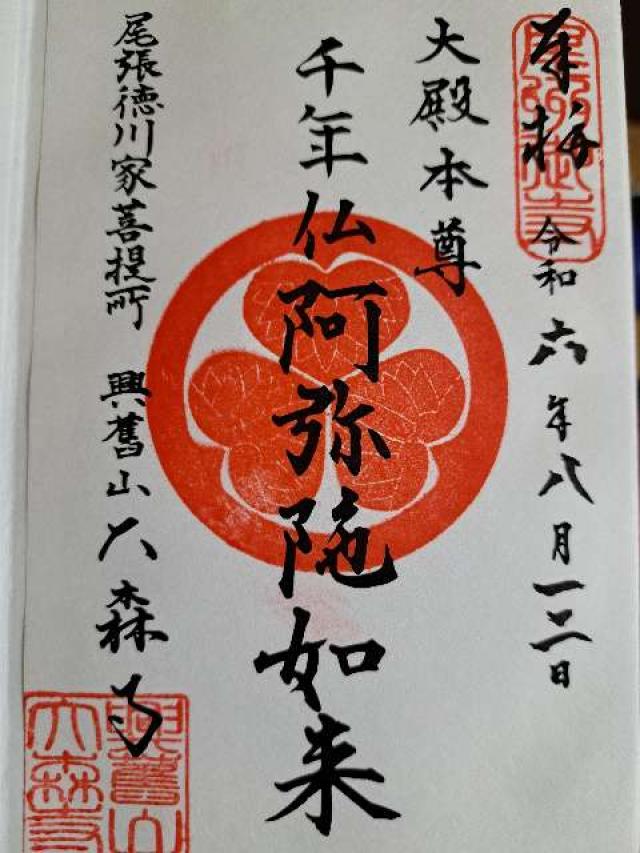 奉拝 令和六年八月一二日
大殿本尊
千年仏阿弥陀如来
尾張徳川家菩提所 興舊山大森寺
興舊山
大森寺